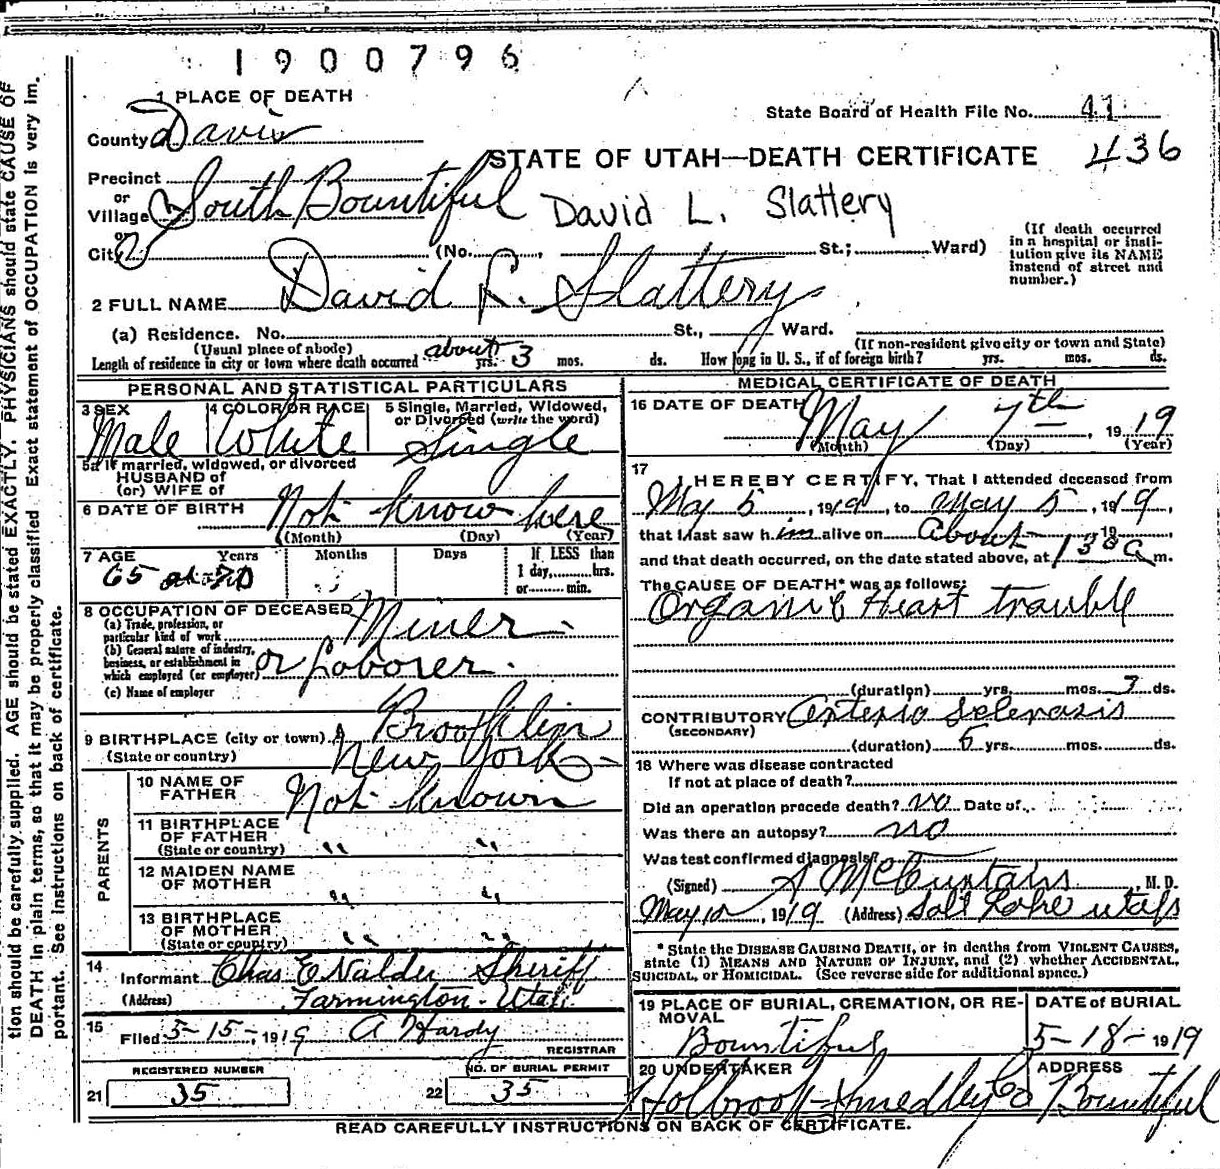 1900796
1 PLACE OF DEATH
State Board of Health File No. 41
County Davis
STATE OF UTAH—DEATH CERTIFICATE 436
Precinct
or
Village South Bountiful David L. Slattery
or
City (No. , St.; Ward)
(If death occurred in a hospital or institution give its NAME instead of street and number.)
2 FULL NAME David L. Slattery
(a) Residence. No. St., Ward.
(Usual place of abode) (If non-resident give city or town and State)
Length of residence in city or town where death occurred about yrs. 3 mos. ds. How long in U. S., if of foreign birth? yrs. mos. ds.
PERSONAL AND STATISTICAL PARTICULARS
3 SEX 4 COLOR OR RACE 5 Single, Married, Widowed, or Divorced (write the word)
Male White Single
5a If married, widowed, or divorced
HUSBAND of
(or) WIFE of
6 DATE OF BIRTH Not know here
(Month) (Day) (Year)
7 AGE Years Months Days If LESS than
65 or 70 1 day, hrs.
or min.
8 OCCUPATION OF DECEASED
(a) Trade, profession, or
particular kind of work Miner
(b) General nature of industry,
business, or establishment in
which employed (or employer) or Laborer.
(c) Name of employer
9 BIRTHPLACE (city or town) Brooklin
(State or country) New York
PARENTS
10 NAME OF
FATHER Not Known
11 BIRTHPLACE
OF FATHER
(State or country) " "
12 MAIDEN NAME
OF MOTHER " "
13 BIRTHPLACE
OF MOTHER
(State or country) " "
14
Informant Chas E Nalder Sheriff
(Address) Farmington - Utah
15
Filed 5-15-, 1919 A Hardy
REGISTRAR
REGISTERED NUMBER NO. OF BURIAL PERMIT
21 35 22 35
MEDICAL CERTIFICATE OF DEATH
16 DATE OF DEATH May 7th , 1919
(Month) (Day) (Year)
17
I HEREBY CERTIFY, That I attended deceased from
May 5 , 1919, to May 5, 1919,
that I last saw him alive on About , 19 ,
and that death occurred, on the date stated above, at 130 a m.
The CAUSE OF DEATH* was as follows:
Organic Heart trouble
(duration) yrs. mos. ds.
CONTRIBUTORY Arterio Sclerosis
(SECONDARY)
(duration) 6 yrs. mos. ds.
18 Where was disease contracted
If not at place of death?
Did an operation procede death? no Date of
Was there an autopsy? no
Was test confirmed diagnosis?
(Signed) , M. D.
May 10 , 1919 (Address) Salt Lake utah
* State the DISEASE CAUSING DEATH, or in deaths from VIOLENT CAUSES,
state (1) MEANS AND NATURE OF INJURY, and (2) whether ACCIDENTAL,
SUICIDAL, or HOMICIDAL. (See reverse side for additional space.)
19 PLACE OF BURIAL, CREMATION, OR RE- DATE of BURIAL
MOVAL
Bountiful 5-18- 1919
20 UNDERTAKER ADDRESS
Holbrook-Smedley Co Bountiful
READ CAREFULLY INSTRUCTIONS ON BACK OF CERTIFICATE.
tion should be carefully supplied. AGE should be stated EXACTLY. PHYSICIANS should state CAUSE OF
DEATH in plain terms, so that it may be properly classified. Exact statement of OCCUPATION is very im-
portant. See instructions on back of certificate.